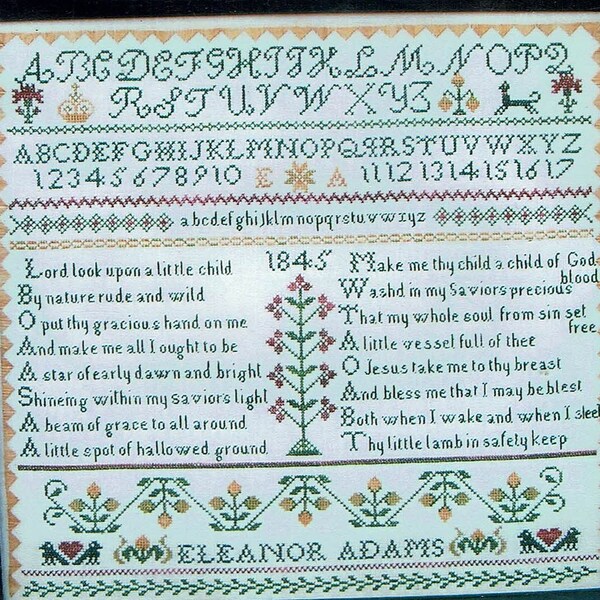 ABCDEFGHIJKLMNOP2
RSTUVWXYZ
ABCDEFGHIJKLMNOPQRSTUVWXYZ
12345678910 E A 11 12 13 14 15 16 17
abcdefghijklmnopqrstuvwxyz
1845
Lord look upon a little child
By nature rude and wild
O put thy gracious hand on me
And make me all I ought to be
A star of early dawn and bright
Shineing within my saviors light
A beam of grace to all around
A little spot of hallowed ground
Make me thy child a child of God
Washd in my Saviors precious blood
That my whole soul from sin set free
A little vessel full of thee
O Jesus take me to thy breast
And bless me that I may be blest
Both when I wake and when I sleep
Thy little lamb in safety keep
ELEANOR ADAMS